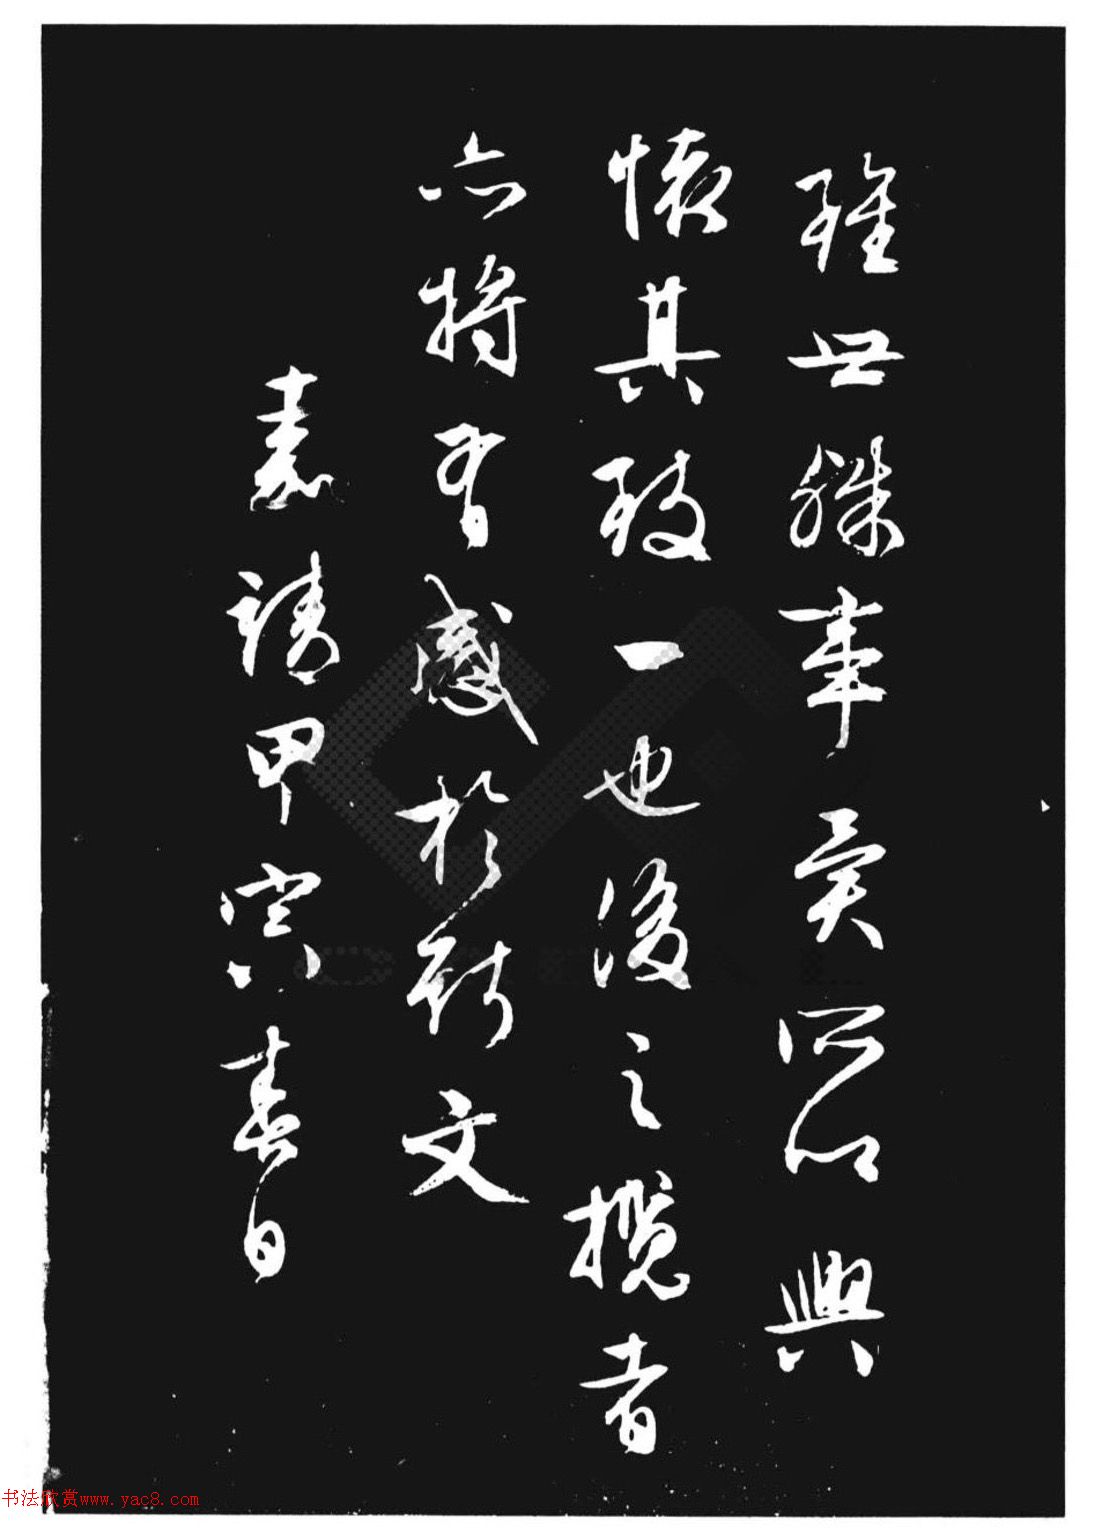 雖世殊事異所以興
懷其致一也後之攬者
亦將有感於斯文
素靖甲寅春日
书法欣赏www.yac8.com